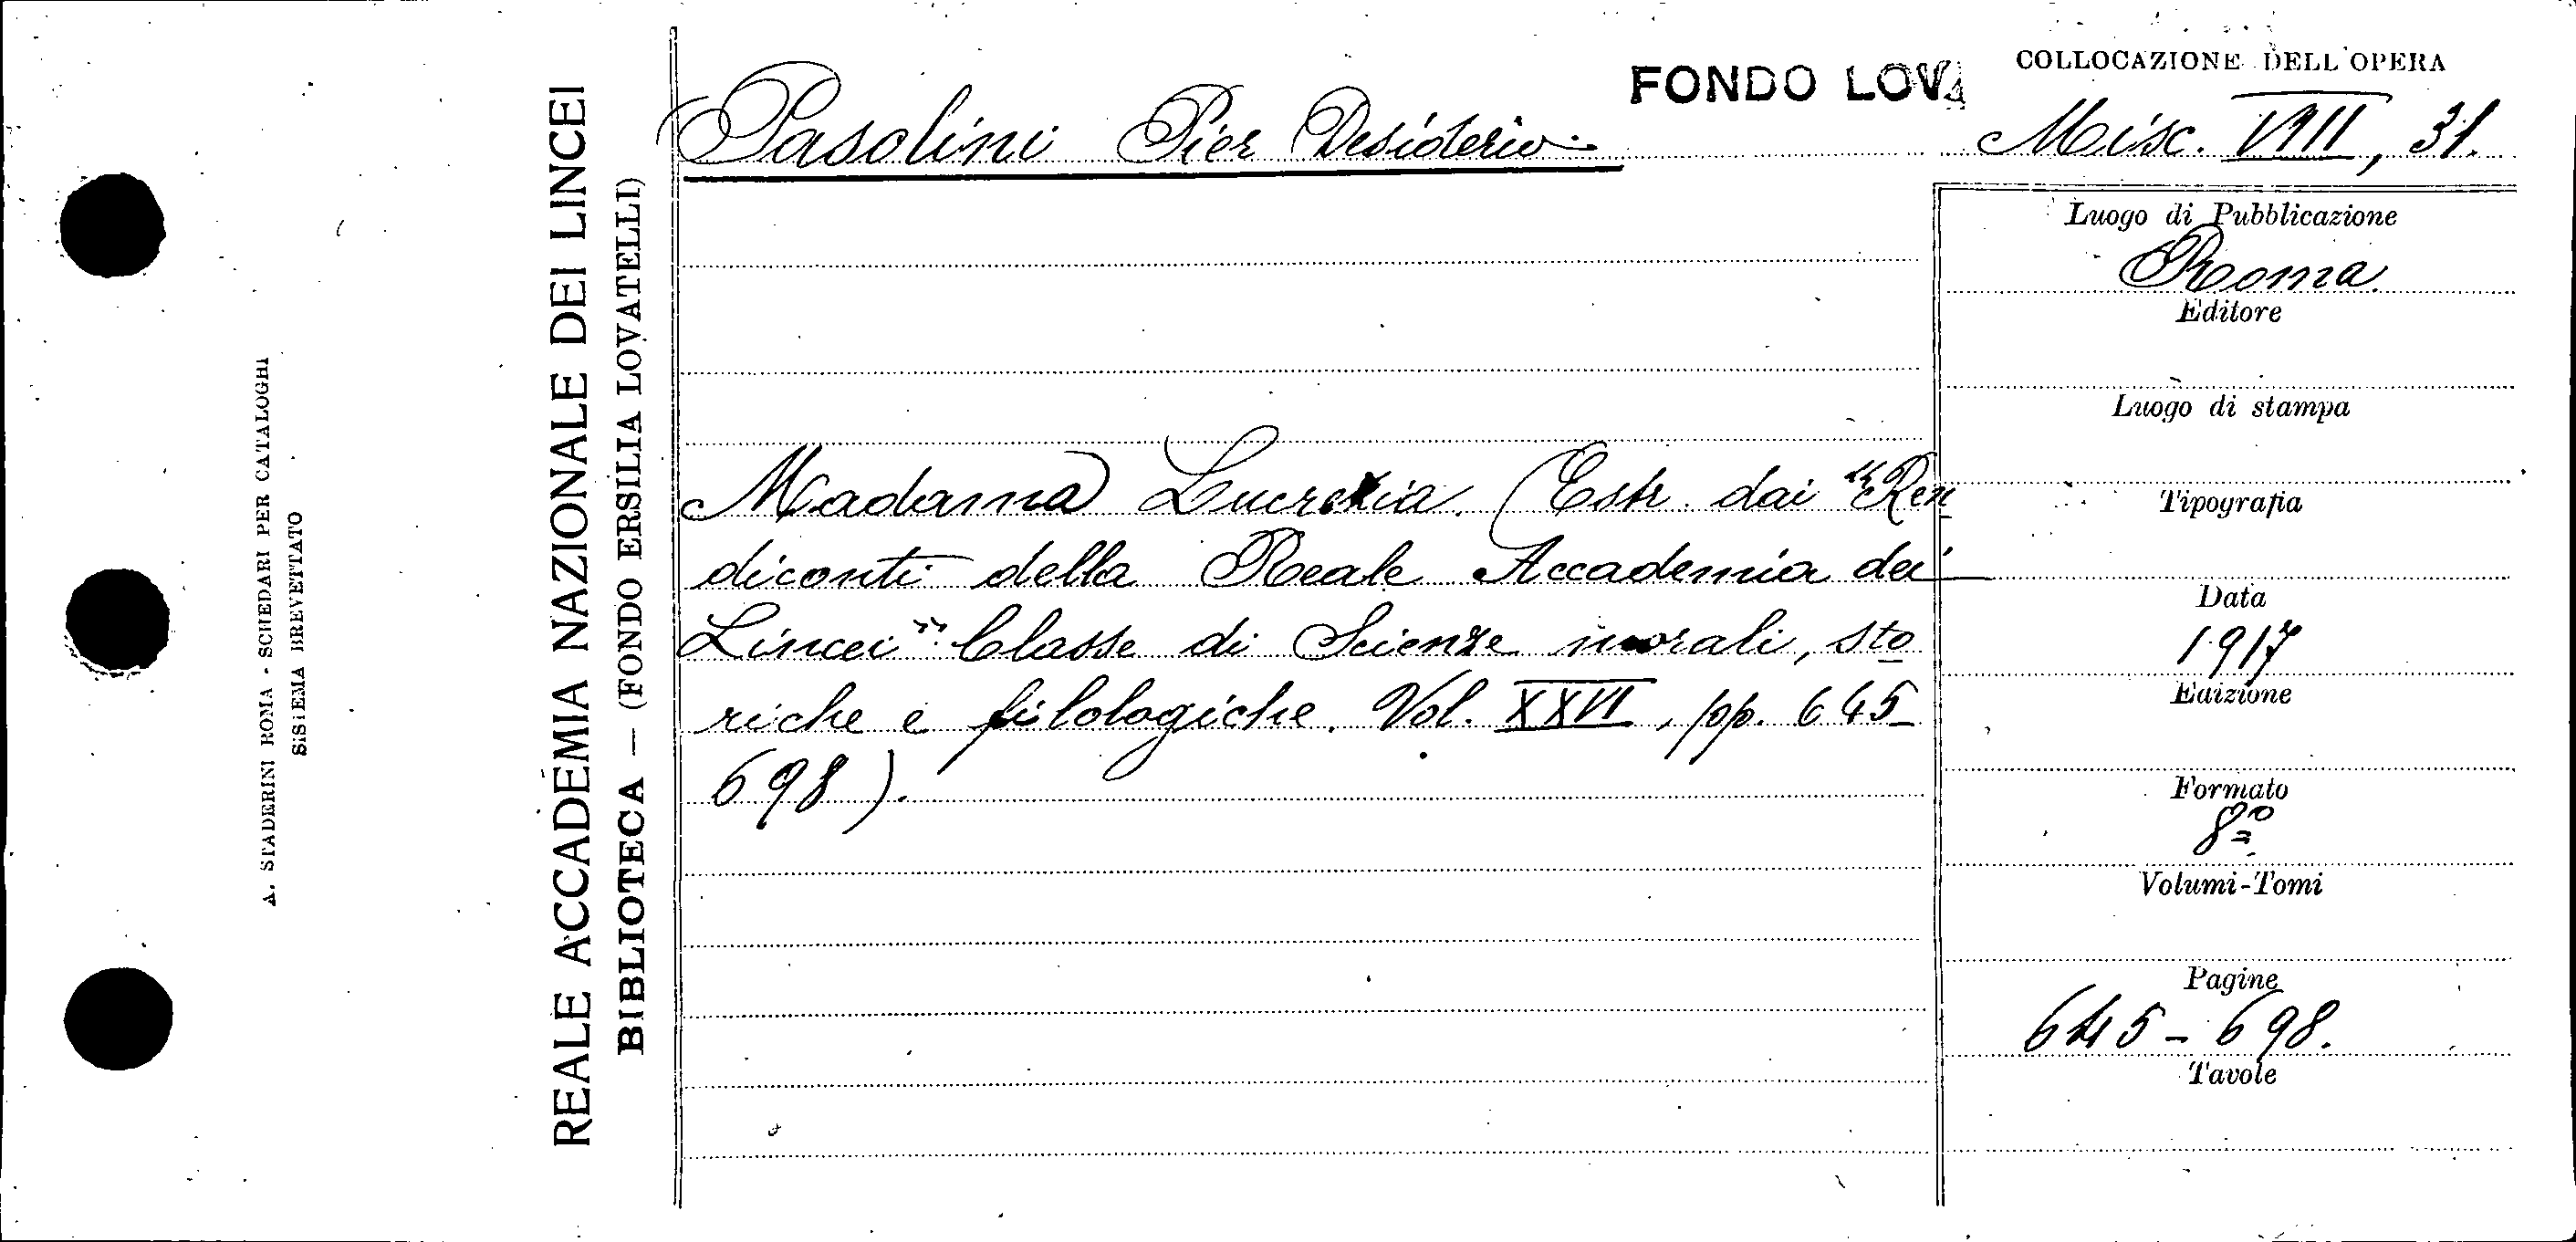 A. STADERINI ROMA - SCHEDARI PER CATALOGHI
SISTEMA BREVETTATO
REALE ACCADEMIA NAZIONALE DEI LINCEI
BIBLIOTECA — (FONDO ERSILIA LOVATELLI)
FONDO LOVA
COLLOCAZIONE DELL'OPERA
Pasolini Pier Desiderio.
Misc. VIII, 31.
Madama Lucrezia. (Estr. dai "Ren
diconti della Reale Accademia dei
Lincei". Classe di Scienze morali, sto
riche e filologiche. Vol. XXVI, pp. 645-
698).
Luogo di Pubblicazione
Roma
Editore
Luogo di stampa
Tipografia
Data
1917
Edizione
Formato
8º
Volumi-Tomi
Pagine
645-698.
Tavole